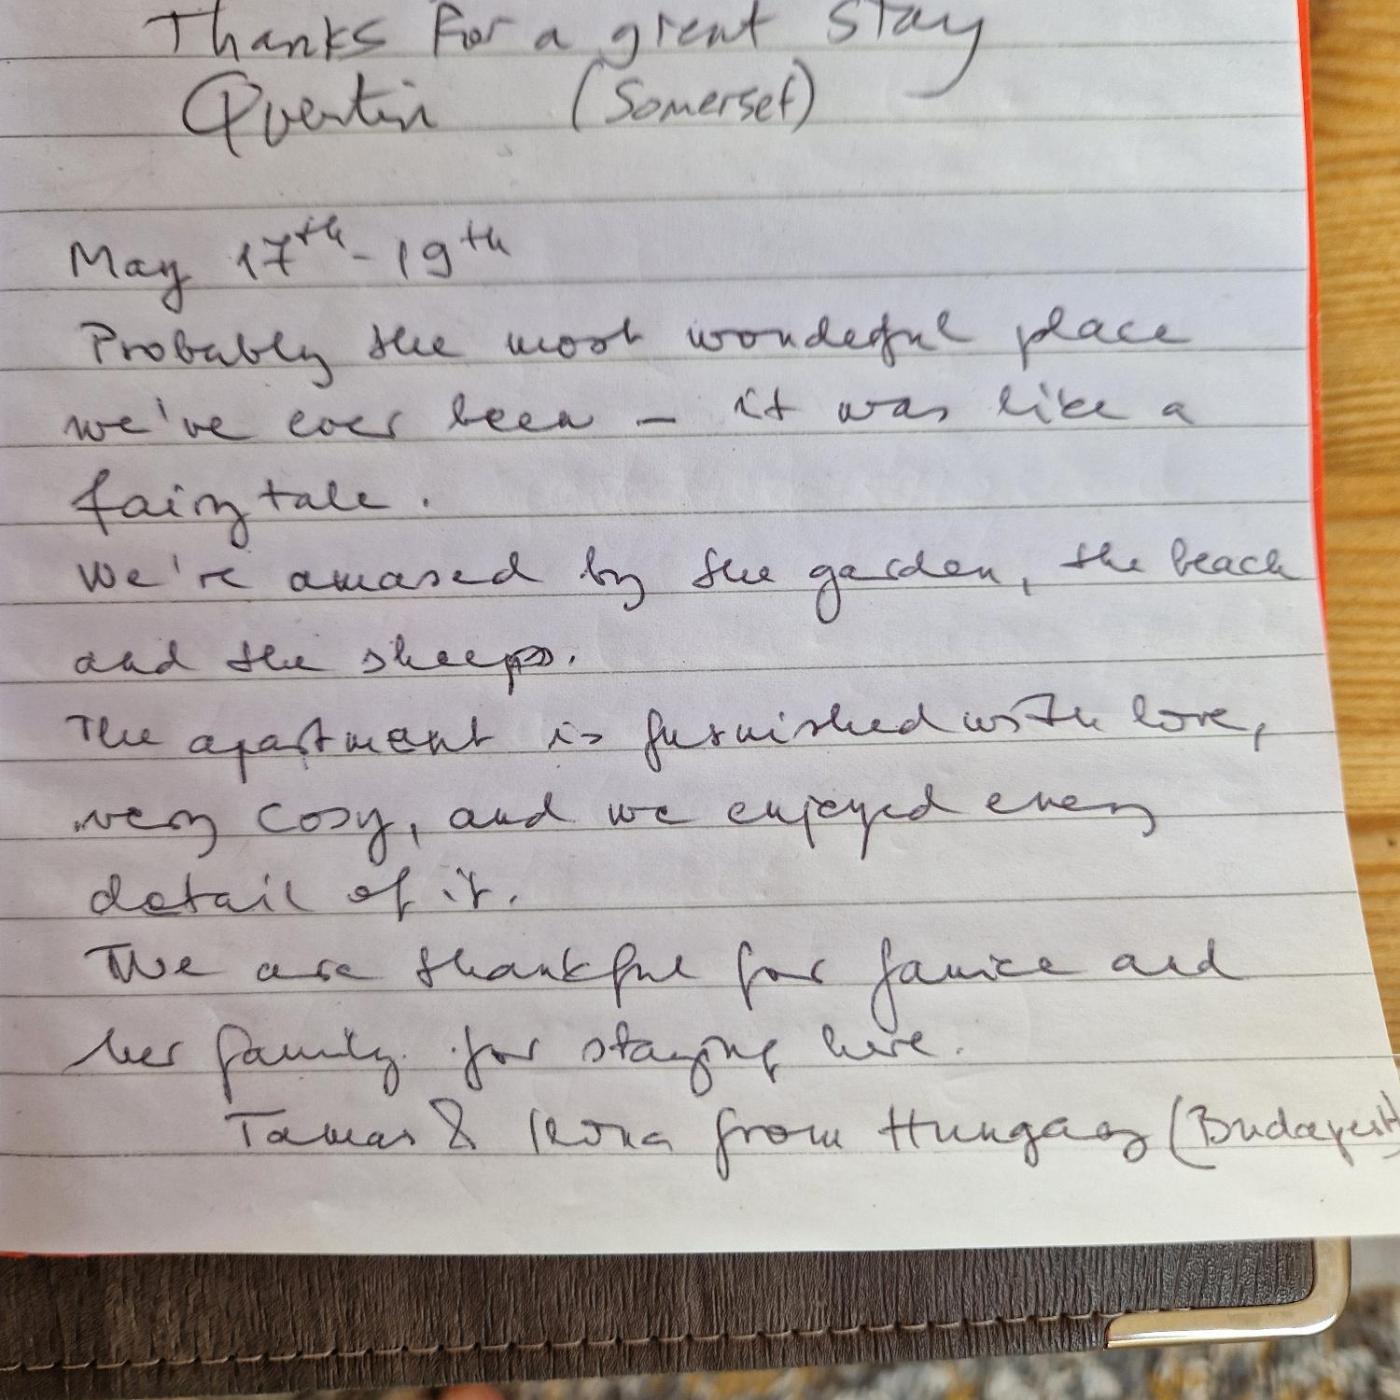 Thanks for a great stay
Quentin (Somerset)
May 17th - 19th
Probably the most wondeful place
we've ever been – it was like a
fairy tale.
We're amased by the garden, the beach
and the sheeps.
The apartment is furnished with love,
very cosy, and we enjoyed every
detail of it.
We are thankful for Janice and
her family for staying here.
Tamas & Ilona from Hungary (Budapest)